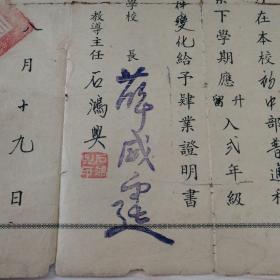 在本校初中部普通科
升
留
下學期應 入弍年級
件變化給予肄業證明書
學校 長 薛威
教導主任 石鴻興
八月十九日